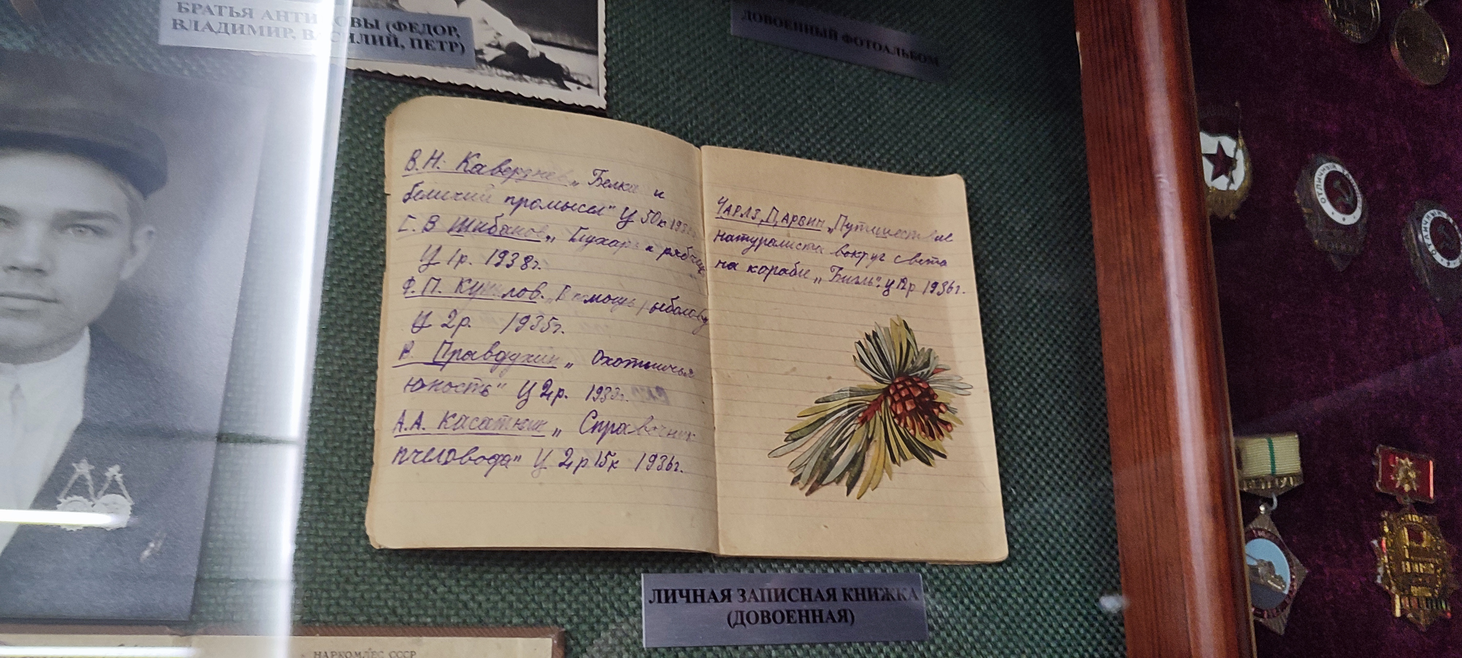 БРАТЬЯ (ФЕДОР,
ВЛАДИМИР, ВАСИЛИЙ, ПЕТР)
ДОВОЕННЫЙ ФОТОАЛЬБОМ
В.Н. Каверзнев „Белка и
беличий промысел" Ц 50к
С. В Шибанов „Глухарь и
Ц 1р. 1938г.
Ф.П. рыболову
Ц 2р. 1935г.
В. Правдухин „ Охотничья
юность" Ц 2р.
А.А. Касаткин „ Справочник
пчеловода" Ц 2р 15к 1936г.
Чарлз Дарвин „Путишествие
натуралиста вокруг света
на корабле „Бигль". 1936г.
ЛИЧНАЯ ЗАПИСНАЯ КНИЖКА
(ДОВОЕННАЯ)
НАРКОМЛЕС СССР